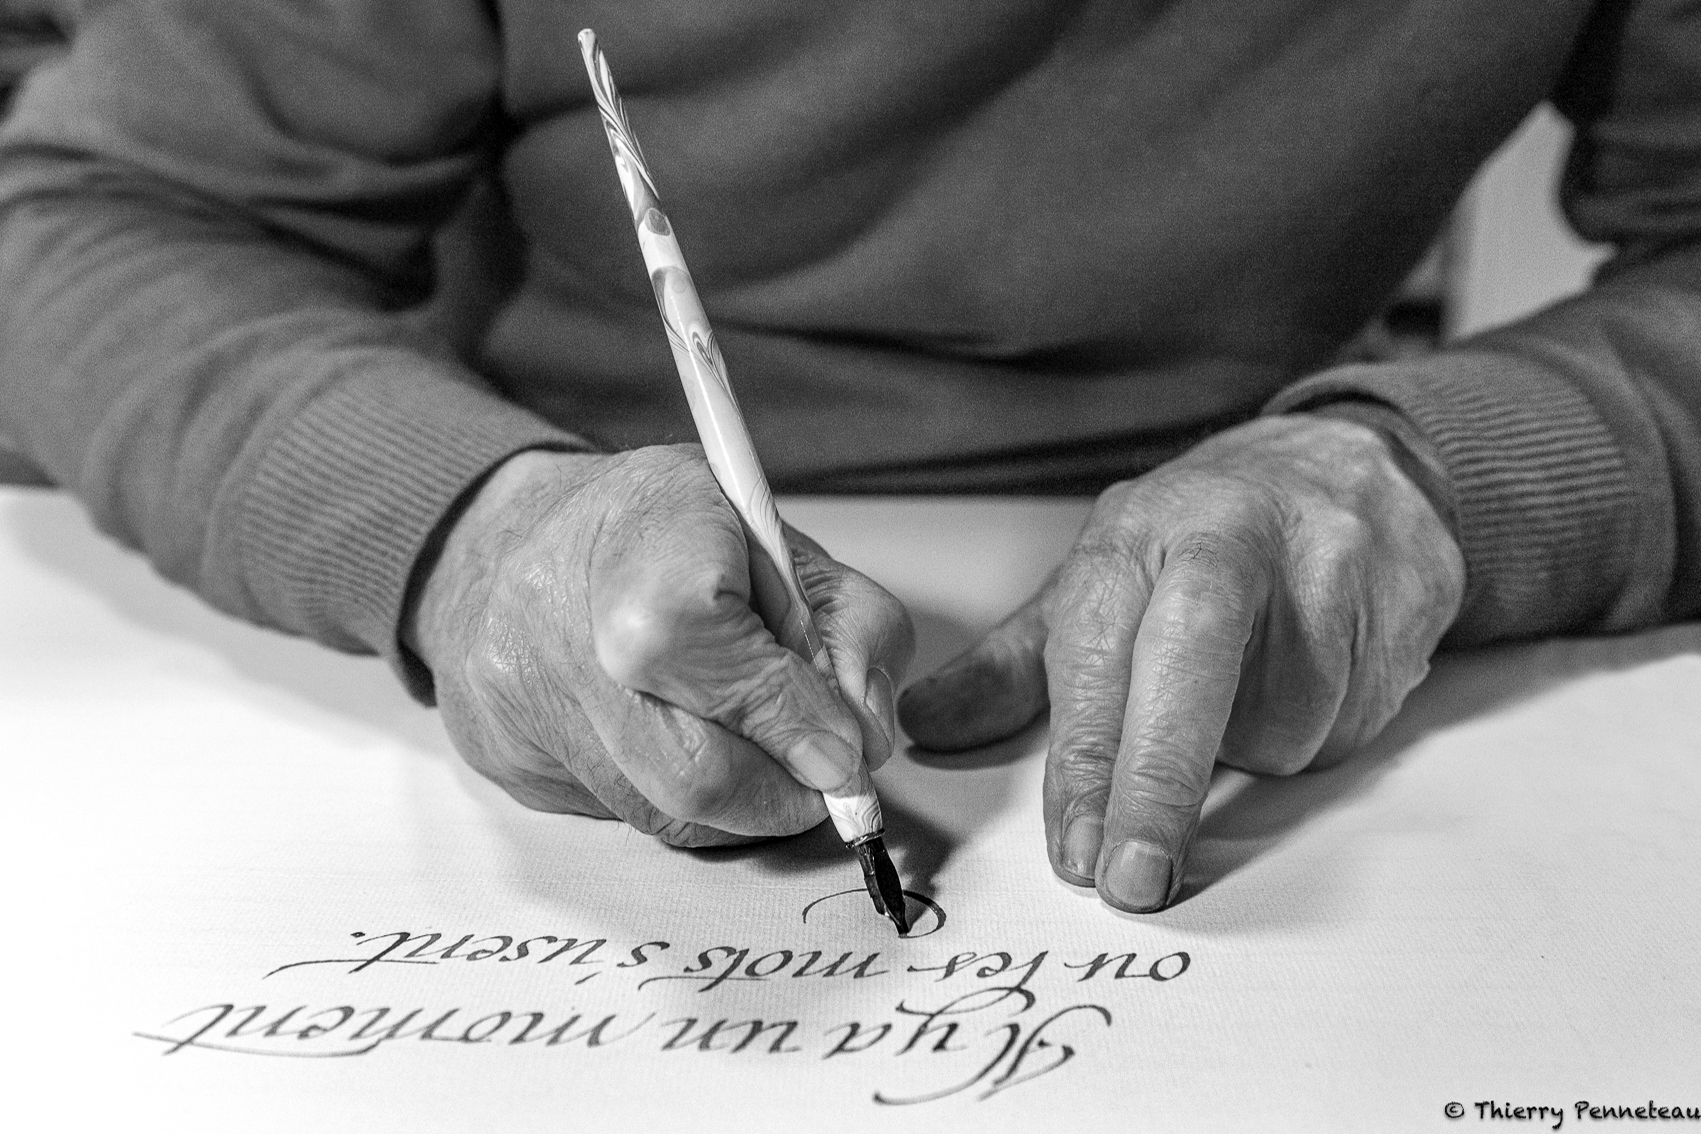 Il y a un moment
ou les mots s'usent.
© Thierry Penneteau